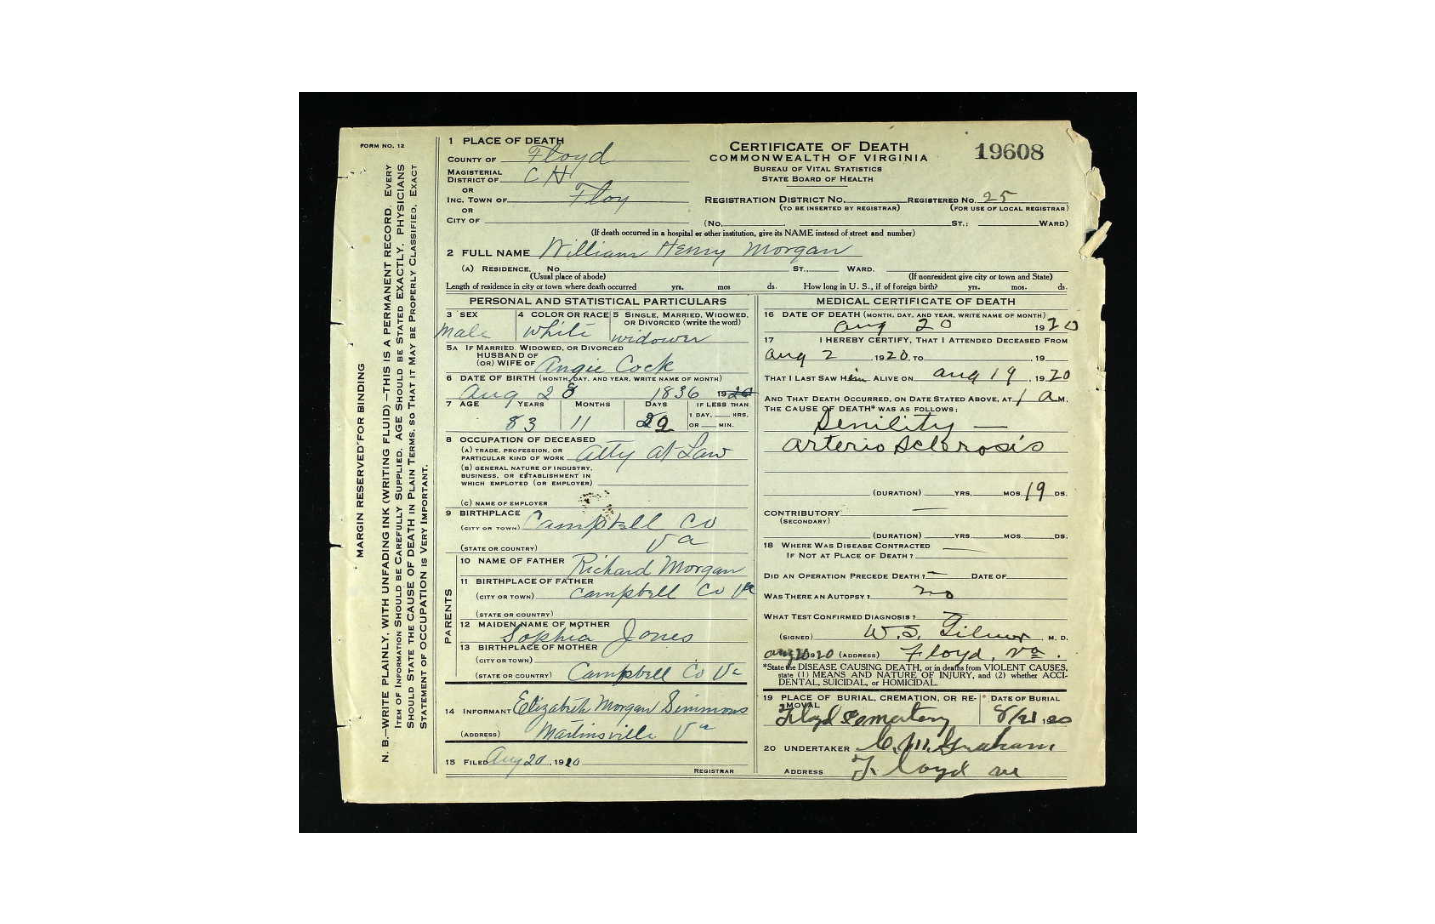 FORM NO. 12
MARGIN RESERVED FOR BINDING
N. B.—WRITE PLAINLY, WITH UNFADING INK (WRITING FLUID)—THIS IS A PERMANENT RECORD. EVERY
ITEM OF INFORMATION SHOULD BE CAREFULLY SUPPLIED. AGE SHOULD BE STATED EXACTLY. PHYSICIANS
SHOULD STATE THE CAUSE OF DEATH IN PLAIN TERMS, SO THAT IT MAY BE PROPERLY CLASSIFIED. EXACT
STATEMENT OF OCCUPATION IS VERY IMPORTANT.
1 PLACE OF DEATH
COUNTY OF Floyd
MAGISTERIAL
DISTRICT OF C H
OR
INC. TOWN OF Floy
OR
CITY OF
CERTIFICATE OF DEATH
COMMONWEALTH OF VIRGINIA
BUREAU OF VITAL STATISTICS
STATE BOARD OF HEALTH
19608
REGISTRATION DISTRICT NO. REGISTERED NO. 25
(TO BE INSERTED BY REGISTRAR) (FOR USE OF LOCAL REGISTRAR)
(No. ST.; WARD)
(If death occurred in a hospital or other institution, give its NAME instead of street and number)
2 FULL NAME William Henry Morgan
(A) RESIDENCE. No. ST., WARD.
(Usual place of abode) (If nonresident give city or town and State)
Length of residence in city or town where death occurred yrs. mos ds. How long in U. S., if of foreign birth? yrs. mos. ds.
PERSONAL AND STATISTICAL PARTICULARS
3 SEX
male
4 COLOR OR RACE
white
5 SINGLE, MARRIED, WIDOWED,
OR DIVORCED (write the word)
widower
5A IF MARRIED, WIDOWED, OR DIVORCED
HUSBAND OF
(OR) WIFE OF Angie Cock
6 DATE OF BIRTH (MONTH, DAY, AND YEAR, WRITE NAME OF MONTH)
Aug 28 1836
7 AGE YEARS MONTHS DAYS IF LESS THAN
1 DAY, HRS.
83 11 22 OR MIN.
8 OCCUPATION OF DECEASED
(A) TRADE, PROFESSION, OR
PARTICULAR KIND OF WORK Atty at Law
(B) GENERAL NATURE OF INDUSTRY,
BUSINESS, OR ESTABLISHMENT IN
WHICH EMPLOYED (OR EMPLOYER)
(C) NAME OF EMPLOYER
9 BIRTHPLACE
(CITY OR TOWN) Campbell Co
(STATE OR COUNTRY) Va
PARENTS
10 NAME OF FATHER Richard Morgan
11 BIRTHPLACE OF FATHER
(CITY OR TOWN) Campbell Co Va
(STATE OR COUNTRY)
12 MAIDEN NAME OF MOTHER
Sophia Jones
13 BIRTHPLACE OF MOTHER
(CITY OR TOWN)
(STATE OR COUNTRY) Campbell Co Va
14 INFORMANT Elizabeth Morgan Simmons
(ADDRESS) Martinsville Va
15 FILED Aug 20, 1920
REGISTRAR
MEDICAL CERTIFICATE OF DEATH
16 DATE OF DEATH (MONTH, DAY, AND YEAR, WRITE NAME OF MONTH)
Aug 20 1920
17 I HEREBY CERTIFY, THAT I ATTENDED DECEASED FROM
Aug 2, 1920, TO , 19
THAT I LAST SAW Him ALIVE ON aug 19, 1920
AND THAT DEATH OCCURRED, ON DATE STATED ABOVE, AT 1 A M.
THE CAUSE OF DEATH* WAS AS FOLLOWS:
Senility —
Arterio Sclerosis
(DURATION) YRS. MOS. 19 DS.
CONTRIBUTORY —
(SECONDARY)
(DURATION) YRS. MOS. DS.
18 WHERE WAS DISEASE CONTRACTED
IF NOT AT PLACE OF DEATH? —
DID AN OPERATION PRECEDE DEATH? — DATE OF
WAS THERE AN AUTOPSY? no
WHAT TEST CONFIRMED DIAGNOSIS?
(SIGNED) W. S. Gilmer M. D.
aug 20 1920 (ADDRESS) Floyd, Va.
*State the DISEASE CAUSING DEATH, or in deaths from VIOLENT CAUSES,
state (1) MEANS AND NATURE OF INJURY, and (2) whether ACCI-
DENTAL, SUICIDAL, or HOMICIDAL.
19 PLACE OF BURIAL, CREMATION, OR RE-
MOVAL DATE OF BURIAL
Floyd Cemetery 8/21 1920
20 UNDERTAKER C. M. Graham
ADDRESS Floyd